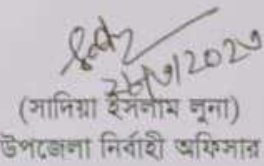 (সাদিয়া ইসলাম লুনা)
উপজেলা নির্বাহী অফিসার